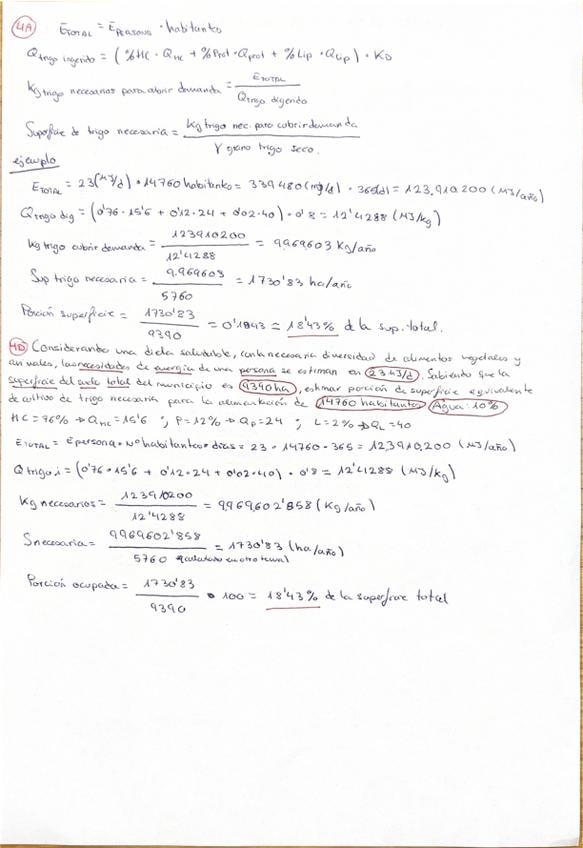 4A E TOTAL = E PERSONA · habitante
Q trigo ingerido = (%HC · Q HC + %Prot · Q prot + %Lip · Q Lip) · KD
Kg trigo necesarios para cubrir demanda = E TOTAL / Q trigo digerido
Superficie de trigo necesaria = Kg trigo nec. para cubrir demanda / Y grano trigo seco.
ejemplo
E TOTAL = 23 (MJ/d) · 14760 habitantes = 339480 (MJ/d) · 365(d) = 123.910.200 (MJ/año)
Q trigo dig = (0'76 · 15'6 + 0'12 · 24 + 0'02 · 40) · 0'8 = 12'4288 (MJ/kg)
Kg trigo cubrir demanda = 123910200 / 12'4288 = 9.969603 Kg/año
Sup trigo necesaria = 9.969603 / 5760 = 1730'83 ha/año
Porción superficie = 1730'83 / 9390 = 0'1843 = 18'43% de la sup. total.
4D Considerando una dieta saludable, con la necesaria diversidad de alimentos vegetales y
animales, las necesidades de energía de una persona se estiman en 23 MJ/d. Sabiendo que la
superficie del suelo total del municipio es 9390 ha, estimar porción de superficie equivalente
de cultivo de trigo necesaria para la alimentación de 14760 habitantes Agua: 10%
HC = 76% → Q HC = 15'6 ; P = 12% → Q P = 24 ; L = 2% → Q L = 40
E TOTAL = E persona · Nº habitantes · días = 23 · 14760 · 365 = 123.910,200 (MJ/año)
Q trigo i = (0'76 · 15'6 + 0'12 · 24 + 0'02 · 40) · 0'8 = 12'4288 (MJ/kg)
Kg necesarios = 123910200 / 12'4288 = 9.969.602'858 (Kg/año)
S necesaria = 9969602'858 / 5760 = 1730'83 (ha/año)
Porción ocupada = 1730'83 / 9390 · 100 = 18'43% de la superficie total